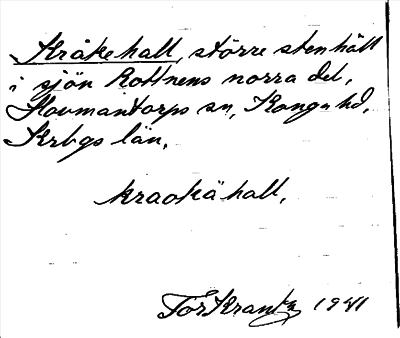 Kråkehall, större stenhäll
i sjön Rottnens norra del,
Hovmantorps sn, Konga hd,
Krbgs län.
kraokähall.
Tor Krantz 1941